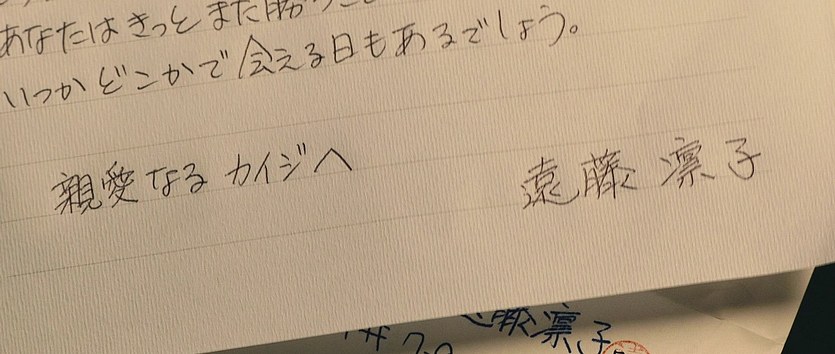 あなたはきっとまた勝つ
いつかどこかで会える日もあるでしょう。
親愛なるカイジへ
遠藤 凛子
藤凛子